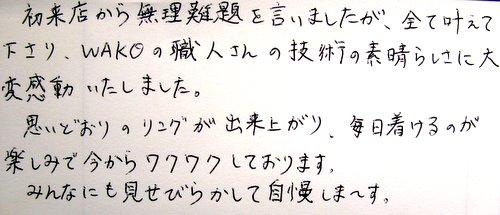 初来店から無理難題を言いましたが、全て叶えて
下さり、WAKOの職人さんの技術の素晴らしさに大
変感動いたしました。
思いどおりのリングが出来上がり、毎日着けるのが
楽しみで今からワクワクしております。
みんなにも見せびらかして自慢しま~す。